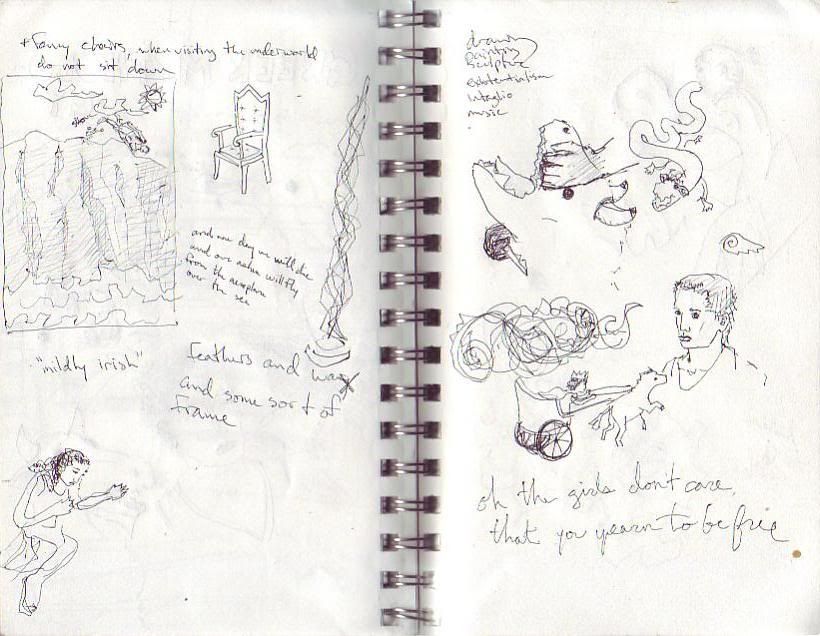 + Fancy chairs, when visiting the underworld
do not sit down
and one day we will die
and our ashes will fly
from the aeroplane
over the sea
"mildly irish"
Feathers and wax
and some sort of
Frame
drawing
painting
sculpture
existentialism
intaglio
music
oh the girls don't care,
that you yearn to be free